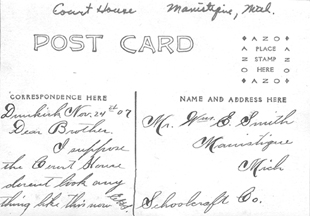 Court House Manistique, Mich.
POST CARD
AZO
PLACE
STAMP
HERE
AZO
CORRESPONDENCE HERE
NAME AND ADDRESS HERE
Dunkirk Nov. 24th 07
Dear Brother.
I suppose
the Court House
dosent look any
thing like this now
Mr. Wm. E. Smith
Manistique
Mich
Schoolcraft Co.